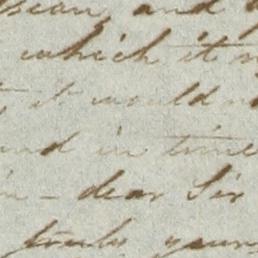 and
which it
it would
and in time
- dear Sir
truly your